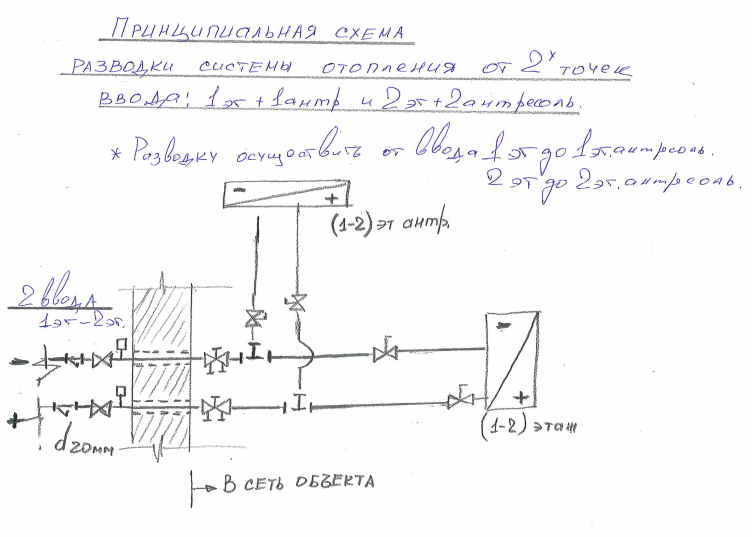 ПРИНЦИПИАЛЬНАЯ СХЕМА
РАЗВОДКИ СИСТЕМЫ ОТОПЛЕНИЯ ОТ 2х ТОЧЕК
ВВОДА: 1эт + 1антр и 2эт + 2антресоль.
* Разводку осуществить от ввода 1эт до 1эт.антресоль.
2эт до 2эт.антресоль.
- +
(1-2) эт антр.
2 ввода
1эт-2эт.
-
+
d20мм
- +
(1-2) этаж
В СЕТЬ ОБЪЕКТА